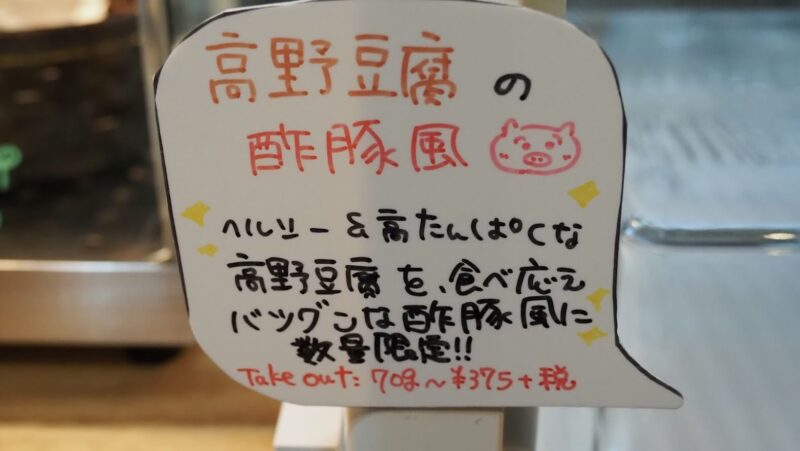 高野豆腐の
酢豚風
ヘルシー&高たんぱくな
高野豆腐を、食べ応え
バツグンな酢豚風に
数量限定!!
Take out: 70g~¥375+税